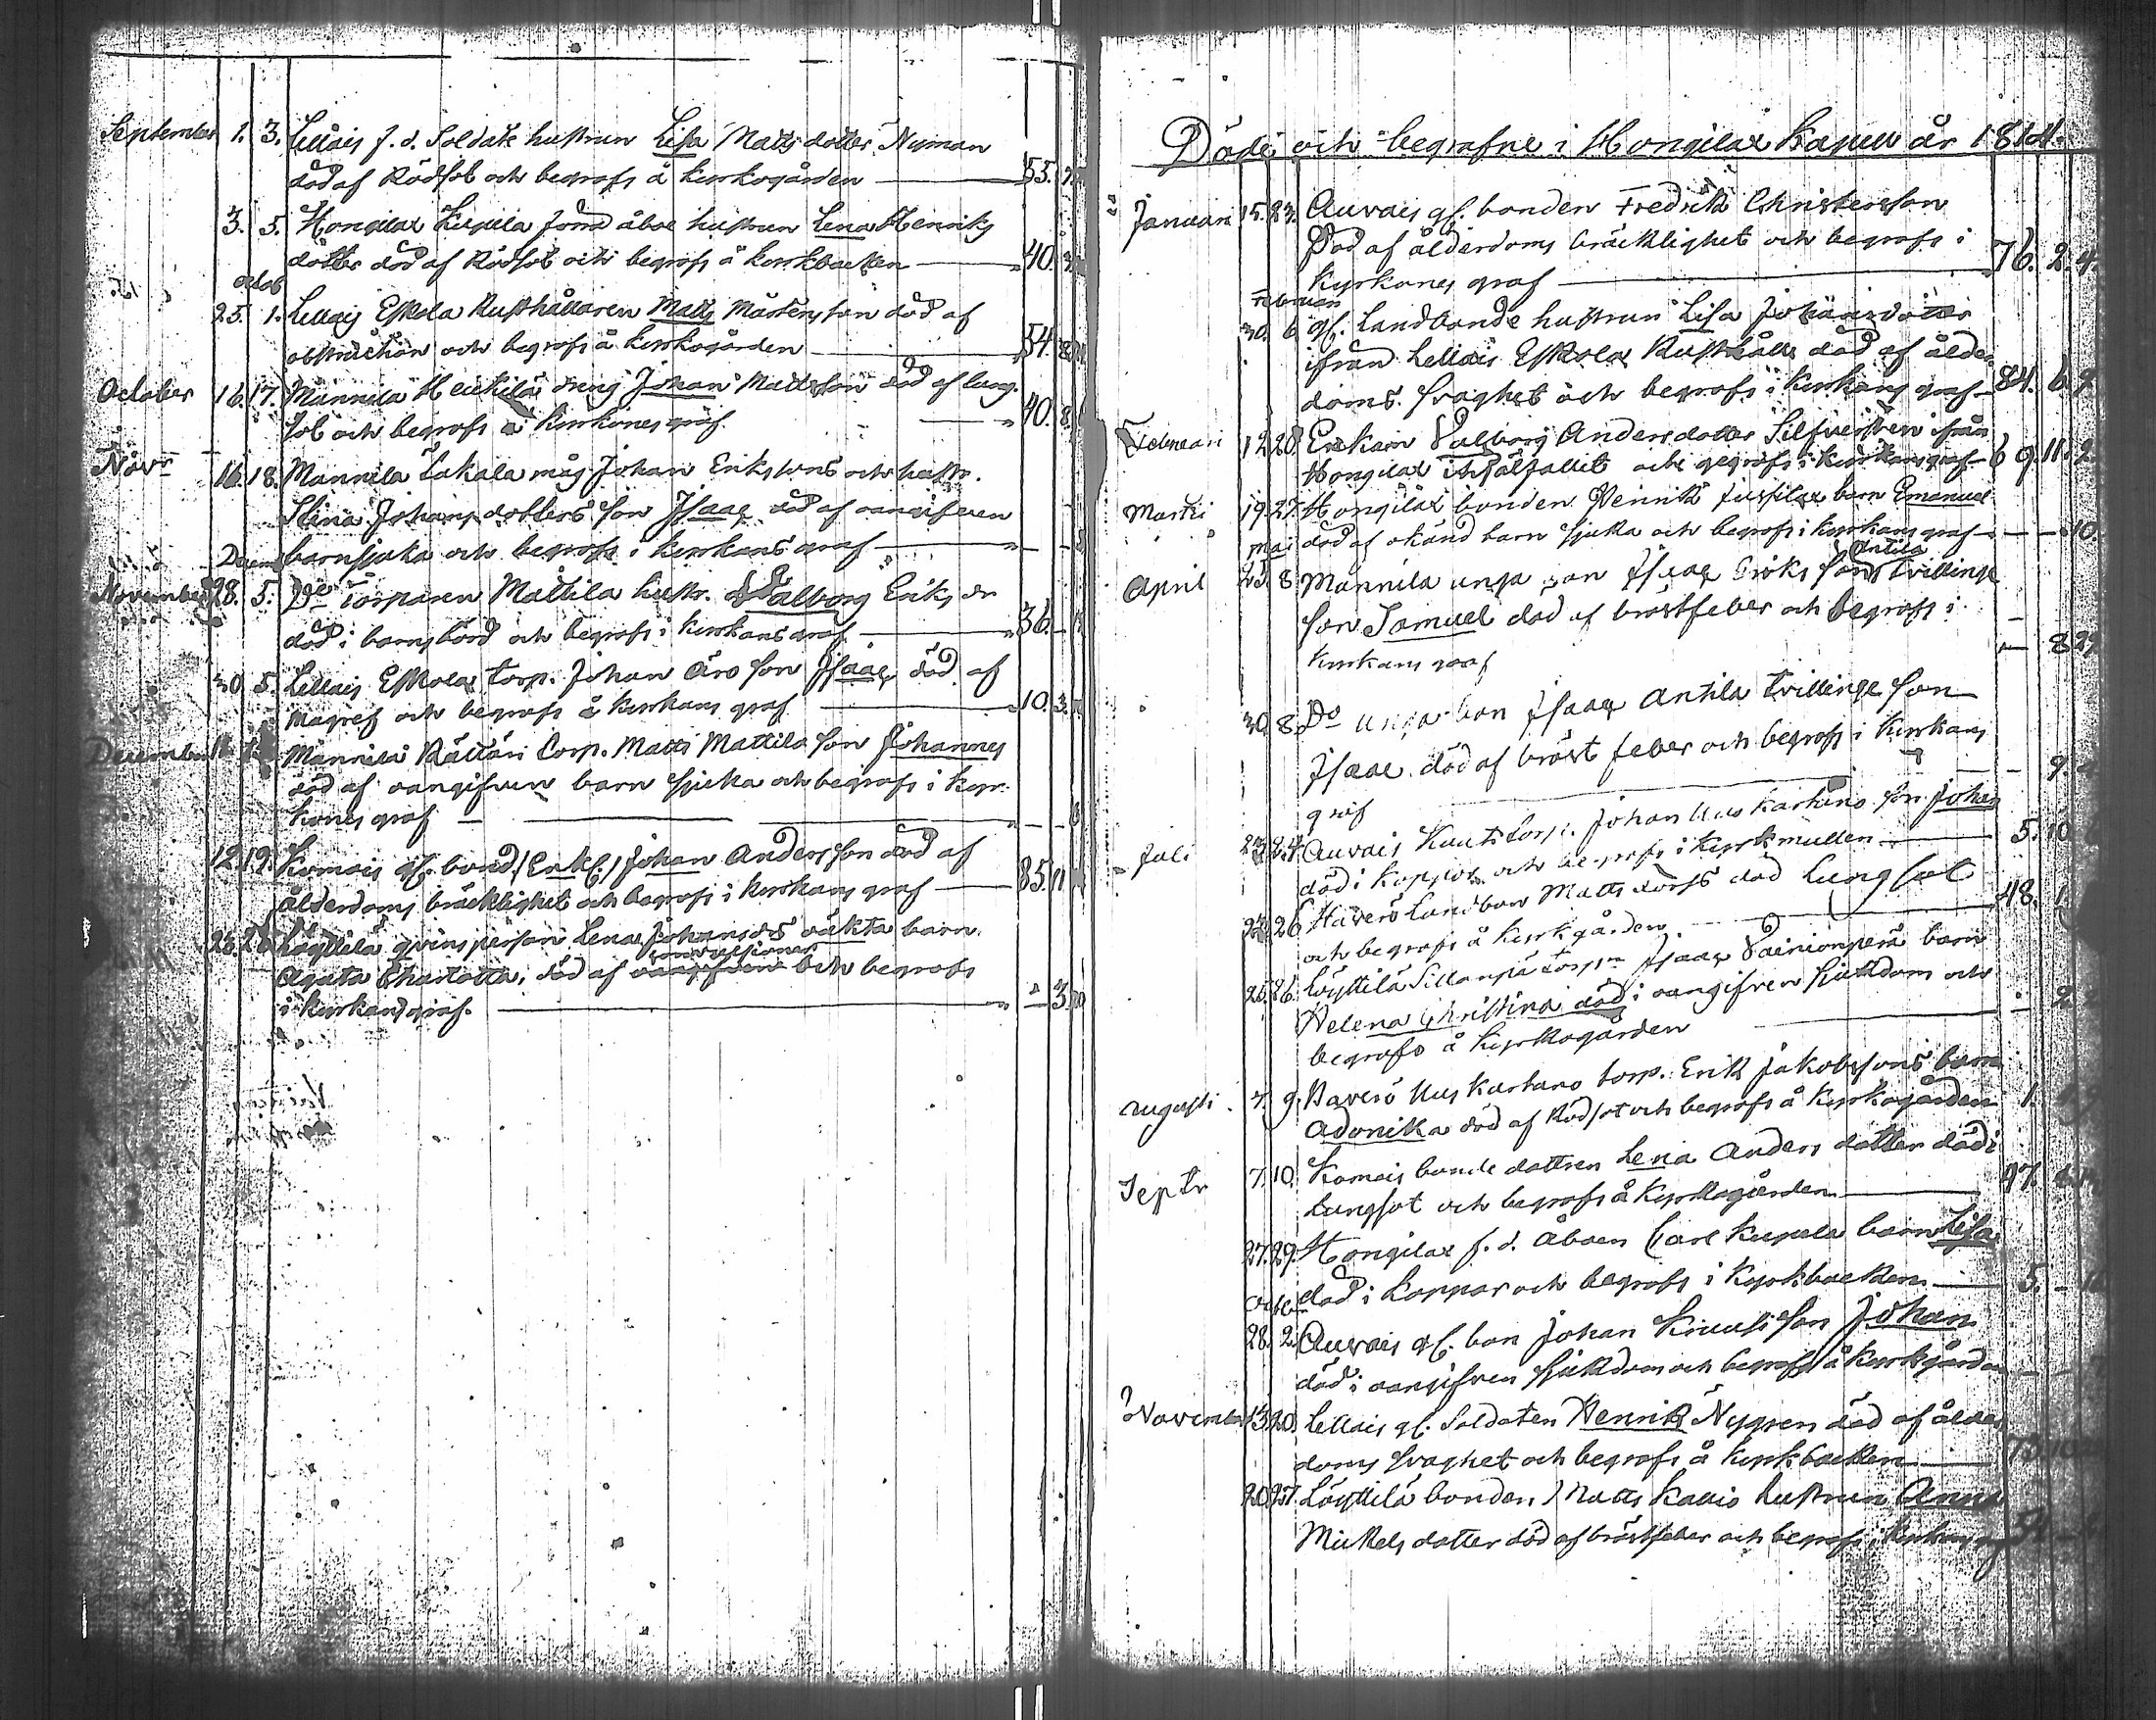 September 1. 3. Lellais f. d. Soldate hustrun Lisa Matts dotter Nyman
död af Rödsot och begrofs å Kyrkogården 55.
3. 5. Hongilax Kupila förra åboe hustrun Lena Henriks
dotter död af Rödsot och begrofs å Kyrkbacken 40.
octob
25. 1. Lellais Eskola Rusthållaren Matts Mårtensson död af
obstruction och begrofs å Kyrkogården 54. 8
October 16. 17. Mannila Heikkilä dreng Johan Mattsson död af lung-
sot och begrofs i Kyrkones graf. 40. 8.
Novr 16. 18. Mannila Lakala måg Johan Erikssons och hustr.
Stina Johans dotters son Isaac död af oangifven
barnsjuka och begrofs i Kyrkans graf
Decem
November 28. 5. Do Torparen Mattila hustr. Valborg Eriks dr
död i barnsbörd och begrofs i Kyrkans graf 36.
30. 5. Lellais Eskola torp. Johan Äro son Isaac död af
magref och begrofs å Kyrkans graf 10. 3.
December Mannila Rättäri torp. Matti Mattila son Johannes
död af oangifven barn sjuka och begrofs i Kyr-
kones graf
12. 19. Komois gl. bond. Enkl. Johan Andersson död af
ålderdoms bräcklighet och begrofs i Kyrkans graf 85. 11
23. 26. Löyttilä qvinsperson Lena Johansdrs oäkta barn
convulsioner
Agata Charlotta, död af oangifven och begrofs
i Kyrkans graf. 3.
Döde och begrafne i Hongilax Kapell år 1814.
Januari 15. 23. Auvais gl. bonden Fredrik Christersson
Död af ålderdoms bräcklighet och begrofs i
Kyrkones graf 76. 2. 4
Februari
30. 6 gl. Landbonde hustrun Lisa Johansdotter
ifrån Lellais Eskola Rusthåll död af ålder-
doms svaghet och begrofs i Kyrkans graf 84. 6.
Februari 12 20. Enkan Valborg Andersdotter Silfversten ifrån
Hongilax ihjälfallit och begrofs i Kyrkans graf 69. 11. 2
Martii 19. 27. Hongilax bonden Henrik Jussilas barn Emanuel
död af okänd barn sjuka och begrofs i Kyrkans graf 10.
maj
Antila
April 23. 8 Mannila unga bon Isaac Eriks sons Tvillinge
son Samuel död af bröstfeber och begrofs i
Kyrkans graf 8
30. 8. Do unga bon Isaac Antila Tvillinge son
Isaac död af bröst feber och begrofs i Kyrkans
graf 9.
Juli 23. 24. Auvais Kauts torp. Johan Uus Kartano son Johan
död i Koppor och begrofs i Kyrkmullen 5. 10
22. 26 Haverö Landbon Matts död Lungsot
och begrofs å Kyrkgården 48. 1
25. 26. Löyttilä Sillanpä Torpn Isaac Vainionperä barn
Helena Christina död i oangifven sjukdom och
begrofs å Kyrkogården 2
Augusti 7. 9. Haverö Uus Kartano torp. Erik Jakobssons barn
Adonika död af Rödsot och begrofs å Kyrkogården 1.
Septr 7. 10. Komois bonde dottren Lena Anders dotter död i
Lungsot och begrofs å Kyrkogården 47.
27. 29. Hongilax f. d. Åboen Carl Kupila barn Lisa
död i Koppor och begrofs i Kyrkbacken 5.
28. 2. Auvais gl. bon Johan Knuuti son Johan
död i oangifven sjukdom och begrofs å Kyrkgården
November 13. 20. Lellais gl. Soldaten Henrik Nygren död af ålder
doms svaghet och begrofs å Kyrkbacken
20. 27. Löyttilä bonden Matts Kallis hustrun Anna
Mickels dotter död af bröstfeber och begrofs i Kyrkans graf